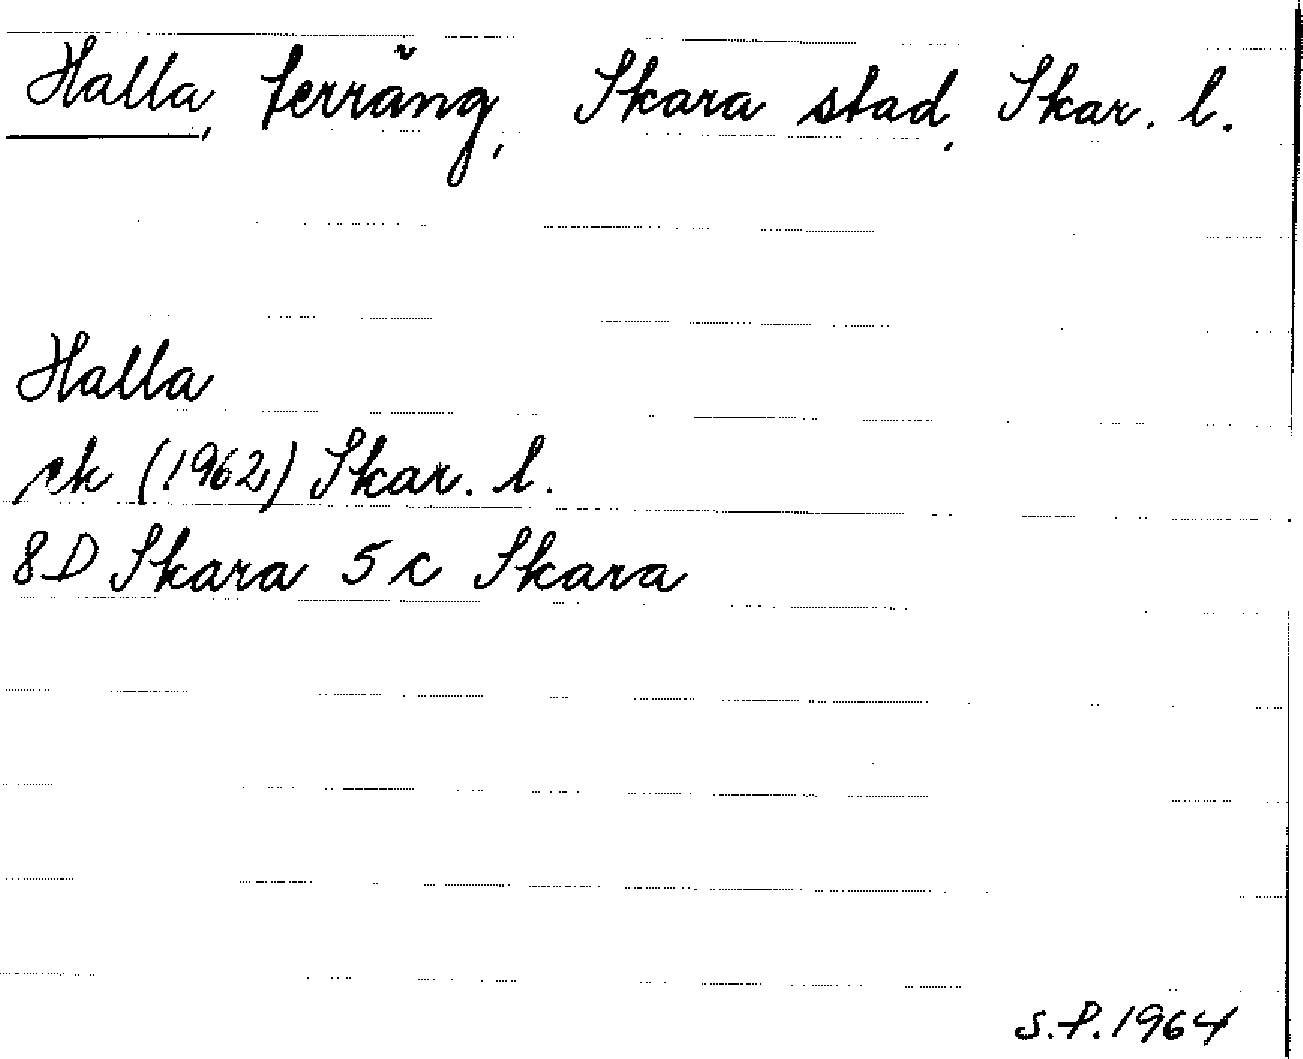 Halla, terräng, Skara stad, Skar. l.
Halla
ek (1962) Skar. l.
8D Skara 5 c Skara
S.P. 1964